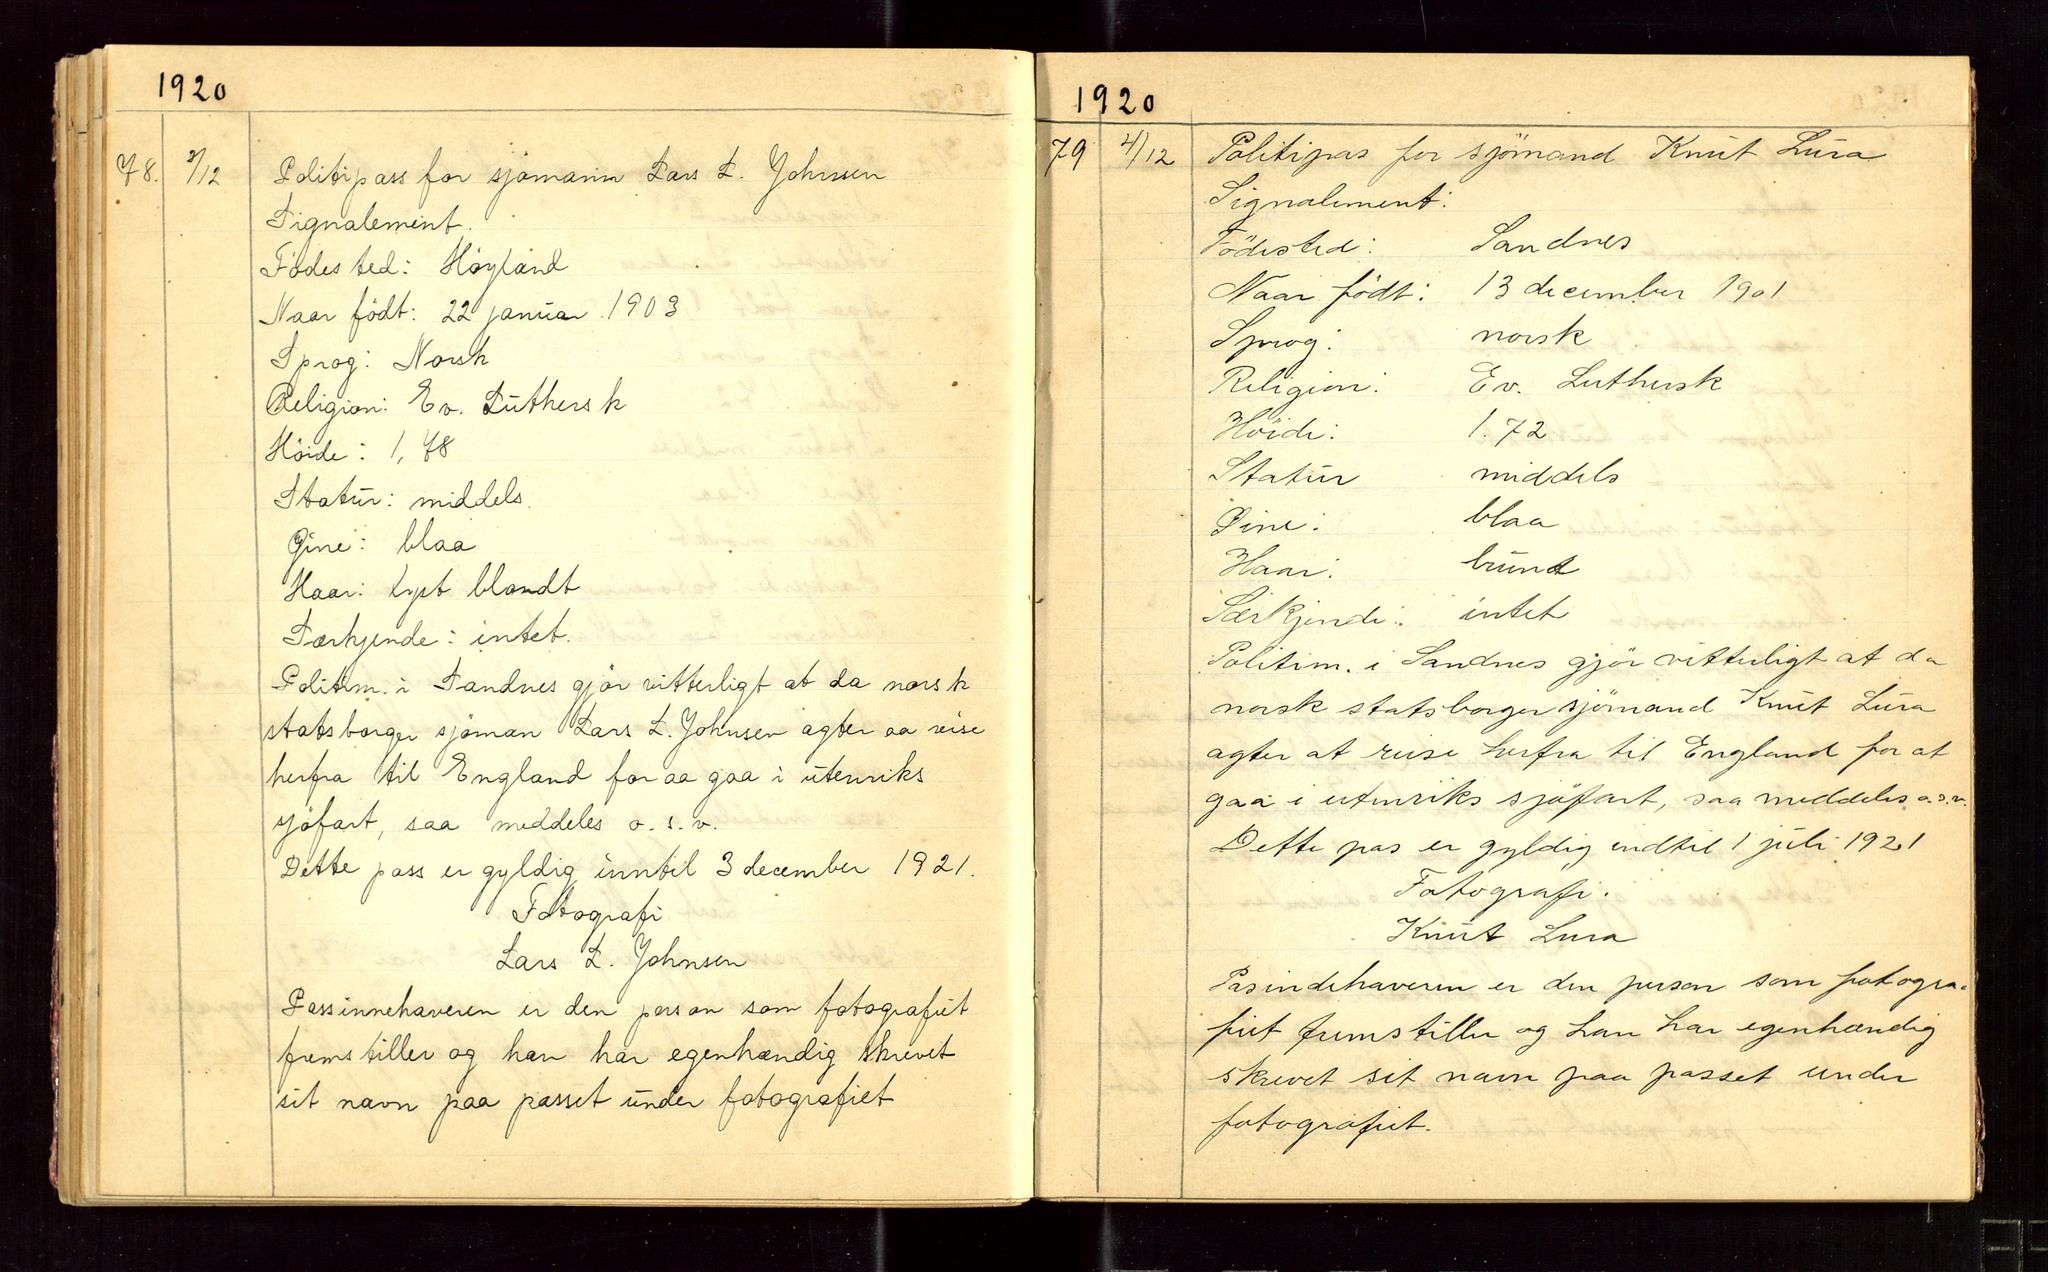 1920
78. 3/12 Politipass for sjömann Lars L. Johnsen
Signalement.
Födested: Höyland
Naar födt: 22 januar 1903
Sprog: Norsk
Religion: Ev. Luthersk
Höide: 1,78
Statur: middels.
Øine: blaa
Haar: lyst blondt
Særkjende: intet.
Politim. i Sandnes gjör vitterligt at da norsk
statsborger sjöman Lars L. Johnsen agter aa reise
herfra til England for aa gaa i utenriks
sjöfart, saa meddeles o. s. v.
Dette pass er gyldig inntil 3 december 1921.
Fotografi
Lars L. Johnsen
Passinnehaveren er den person som fotografiet
fremstiller og han har egenhændig skrevet
sit navn paa passet under fotografiet
1920
79 4/12 Politipas for sjömand Knut Lura
Signalement:
Födested: Sandnes
Naar födt: 13 december 1901
Sprog: norsk
Religion: Ev. Luthersk
Höide: 1.72
Statur middels
Øine: blaa
Haar: brunt
Særkjende: intet
Politim. i Sandnes gjör vitterligt at da
norsk statsborger sjömand Knut Lura
agter at reise herfra til England for at
gaa i utenriks sjöfart, saa meddeles o.s.v.
Dette pas er gyldig indtil 1 juli 1921
Fotografi.
Knut Lura
Pasindehaveren er den person som fotogra-
fiet fremstiller og han har egenhændig
skrevet sit navn paa passet under
fotografiet.